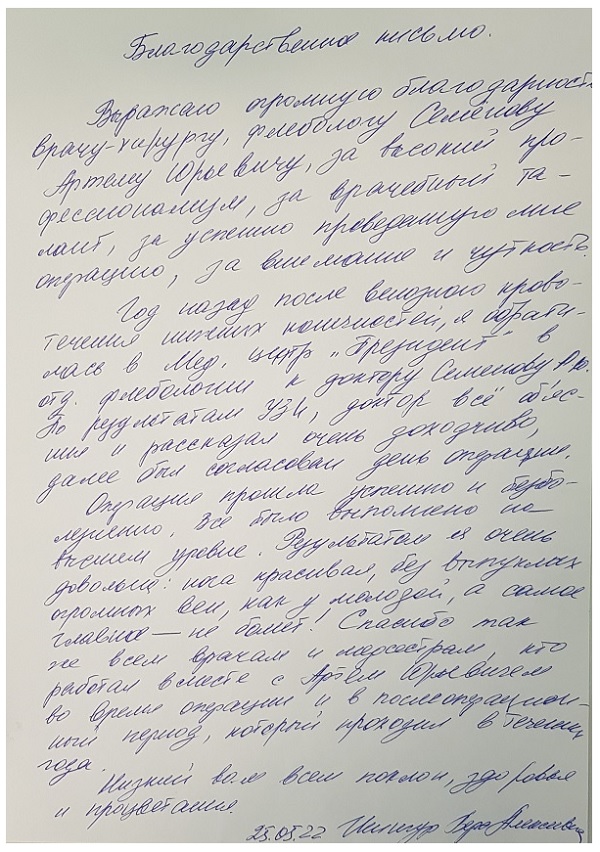 Благодарственное письмо.
Выражаю огромную благодарность
врачу-хирургу, флебологу Семёнову
Артему Юрьевичу, за высокий про-
фессионализм, за врачебный та-
лант, за успешно проведенную мне
операцию, за внимание и чуткость.
Год назад после венозного крово-
течения нижних конечностей, я обрати-
лась в Мед. центр „Президент" в
отд. флебологии к доктору Семенову А.Ю.
По результатам УЗИ, доктор всё объяс-
нил и рассказал очень доходчиво,
далее был согласован день операции.
Операция прошла успешно и безбо-
лезненно. Все было выполнено на
высшем уровне. Результатом я очень
довольна: нога красивая, без выпуклых
огромных вен, как у молодой, а самое
главное — не болит! Спасибо так
же всем врачам и медсестрам, кто
работал вместе с Артём Юрьевичем
во время операции и в послеоперацион-
ный период, который проходил в течении
года.
Низкий вам всем поклон, здоровья
и процветания.
25.05.22 Вера